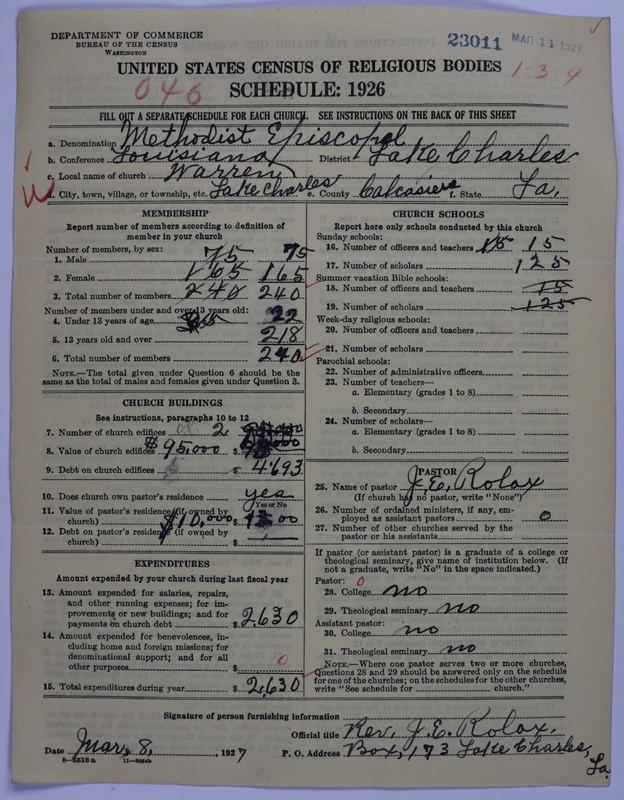 DEPARTMENT OF COMMERCE
BUREAU OF THE CENSUS
WASHINGTON
23011 MAR 11 1927
UNITED STATES CENSUS OF RELIGIOUS BODIES
1-3-4
046
SCHEDULE: 1926
FILL OUT A SEPARATE SCHEDULE FOR EACH CHURCH. SEE INSTRUCTIONS ON THE BACK OF THIS SHEET
a. Denomination Methodist Episcopal
b. Conference Louisiana District Lake Charles
c. Local name of church Warren
d. City, town, village, or township, etc. Lake Charles e. County Calcasieu f. State La.
MEMBERSHIP
Report number of members according to definition of member in your church
Number of members, by sex:
1. Male 75 75
2. Female 165 165
3. Total number of members 240 240
Number of members under and over 13 years old:
4. Under 13 years of age 22
5. 13 years old and over 218
6. Total number of members 240
NOTE.—The total given under Question 6 should be the same as the total of males and females given under Question 3.
CHURCH BUILDINGS
See instructions, paragraphs 10 to 12
7. Number of church edifices 2
8. Value of church edifices $95,000 $
9. Debt on church edifices $ 4693
10. Does church own pastor's residence yes
Yes or No
11. Value of pastor's residence (if owned by church) $10,000 $
12. Debt on pastor's residence (if owned by church) $
EXPENDITURES
Amount expended by your church during last fiscal year
13. Amount expended for salaries, repairs, and other running expenses; for improvements or new buildings; and for payments on church debt $2,630
14. Amount expended for benevolences, including home and foreign missions; for denominational support; and for all other purposes $ 0
15. Total expenditures during year $2,630
CHURCH SCHOOLS
Report here only schools conducted by this church
Sunday schools:
16. Number of officers and teachers 15 15
17. Number of scholars 125
Summer vacation Bible schools:
18. Number of officers and teachers 15
19. Number of scholars 125
Week-day religious schools:
20. Number of officers and teachers
21. Number of scholars
Parochial schools:
22. Number of administrative officers
23. Number of teachers—
a. Elementary (grades 1 to 8)
b. Secondary
24. Number of scholars—
a. Elementary (grades 1 to 8)
b. Secondary
PASTOR
25. Name of pastor J. E. Rolax
(If church has no pastor, write "None")
26. Number of ordained ministers, if any, employed as assistant pastors 0
27. Number of other churches served by the pastor or his assistants
If pastor (or assistant pastor) is a graduate of a college or theological seminary, give name of institution below. (If not a graduate, write "No" in the space indicated.)
Pastor: 0
28. College no
29. Theological seminary no
Assistant pastor:
30. College no
31. Theological seminary no
NOTE.—Where one pastor serves two or more churches, Questions 28 and 29 should be answered only on the schedule for one of the churches; on the schedules for the other churches, write "See schedule for church."
Signature of person furnishing information
Official title Rev. J. E. Rolax.
Date Mar, 8, 1927 P. O. Address Box, 173 Lake Charles, La.
8-5518a 11-9084b